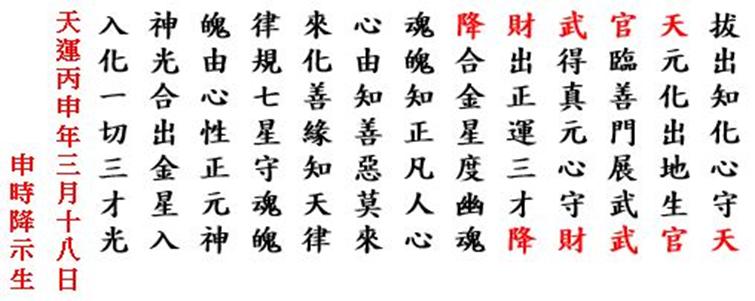 拔出知化心守天
天元化出地生官
官臨善門展武武
武得真元心守財
財出正運三才降
降合金星度幽魂
魂魄知正凡人心
心由知善惡莫來
來化善緣知天律
律規七星守魂魄
魄由心性正元神
神光合出金星入
入化一切三才光
天運丙申年三月十八日
申時降示生